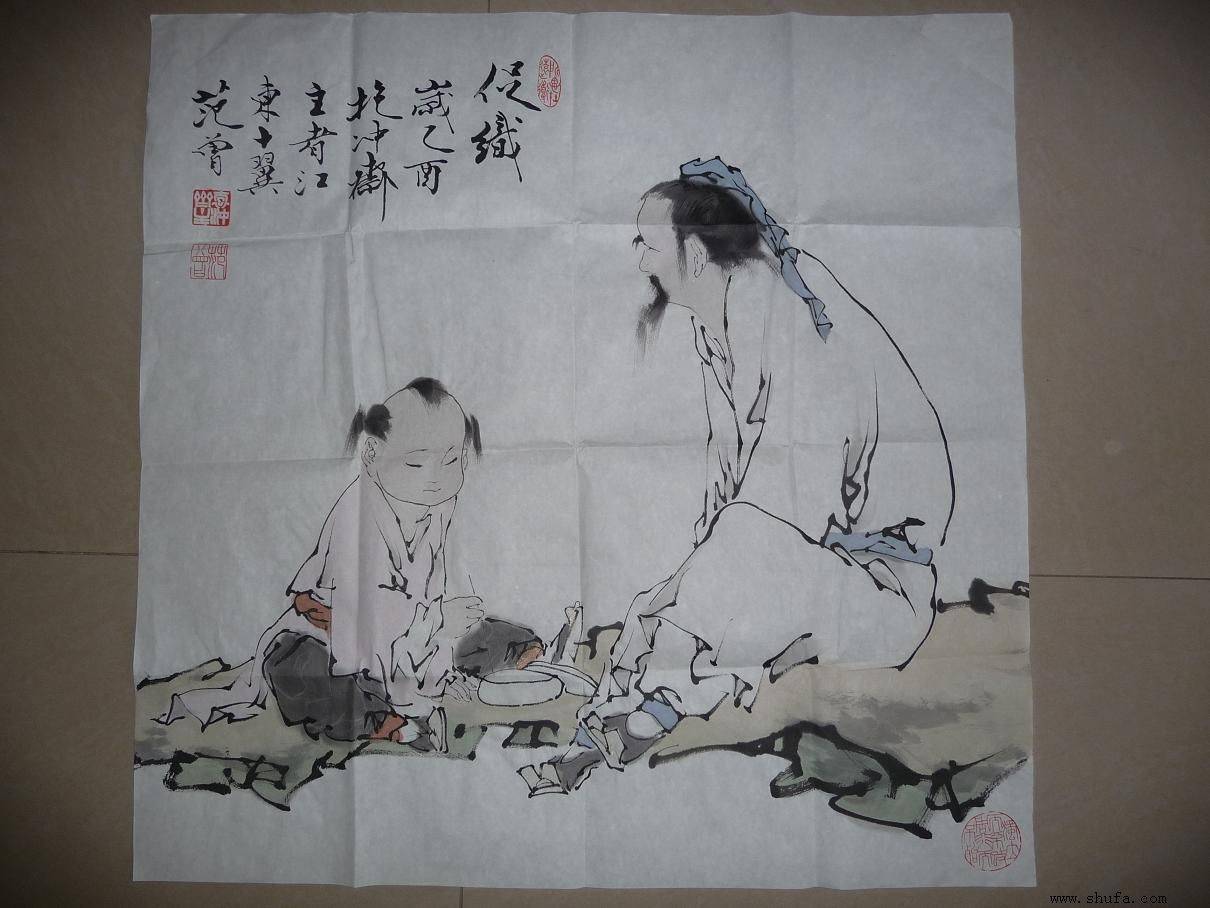 促織
歲乙酉
抱冲齋
主者江
東十翼
范曾
www.shufa.com